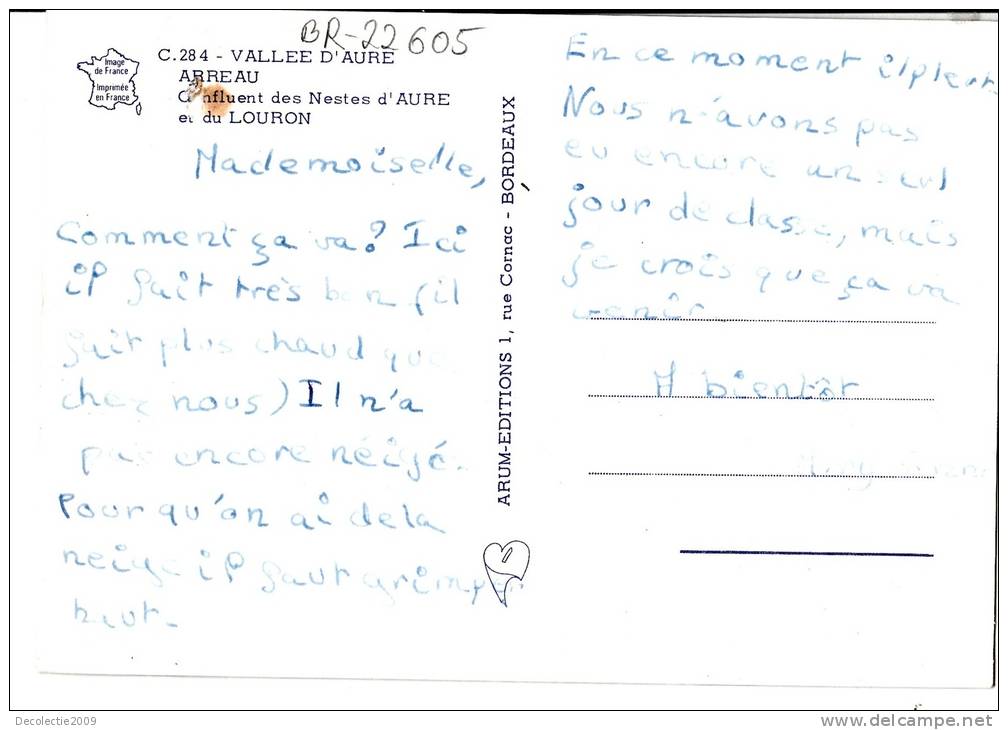 BR-22605
Image
de France
Imprimée
en France
C.284 - VALLEE D'AURE
ARREAU
Confluent des Nestes d'AURE
et du LOURON
Mademoiselle,
Comment ça va? Ici
il fait très bon (il
fait plus chaud que
chez nous) Il n'a
pas encore néigé.
Pour qu'on ai de la
neige il faut grimper
haut.
ARUM-EDITIONS 1, rue Cornac - BORDEAUX
En ce moment il pleut
Nous n'avons pas
eu encore un seul
jour de classe, mais
je crois que ça va
venir
A bientôt
Decolectie2009
www.delcampe.net